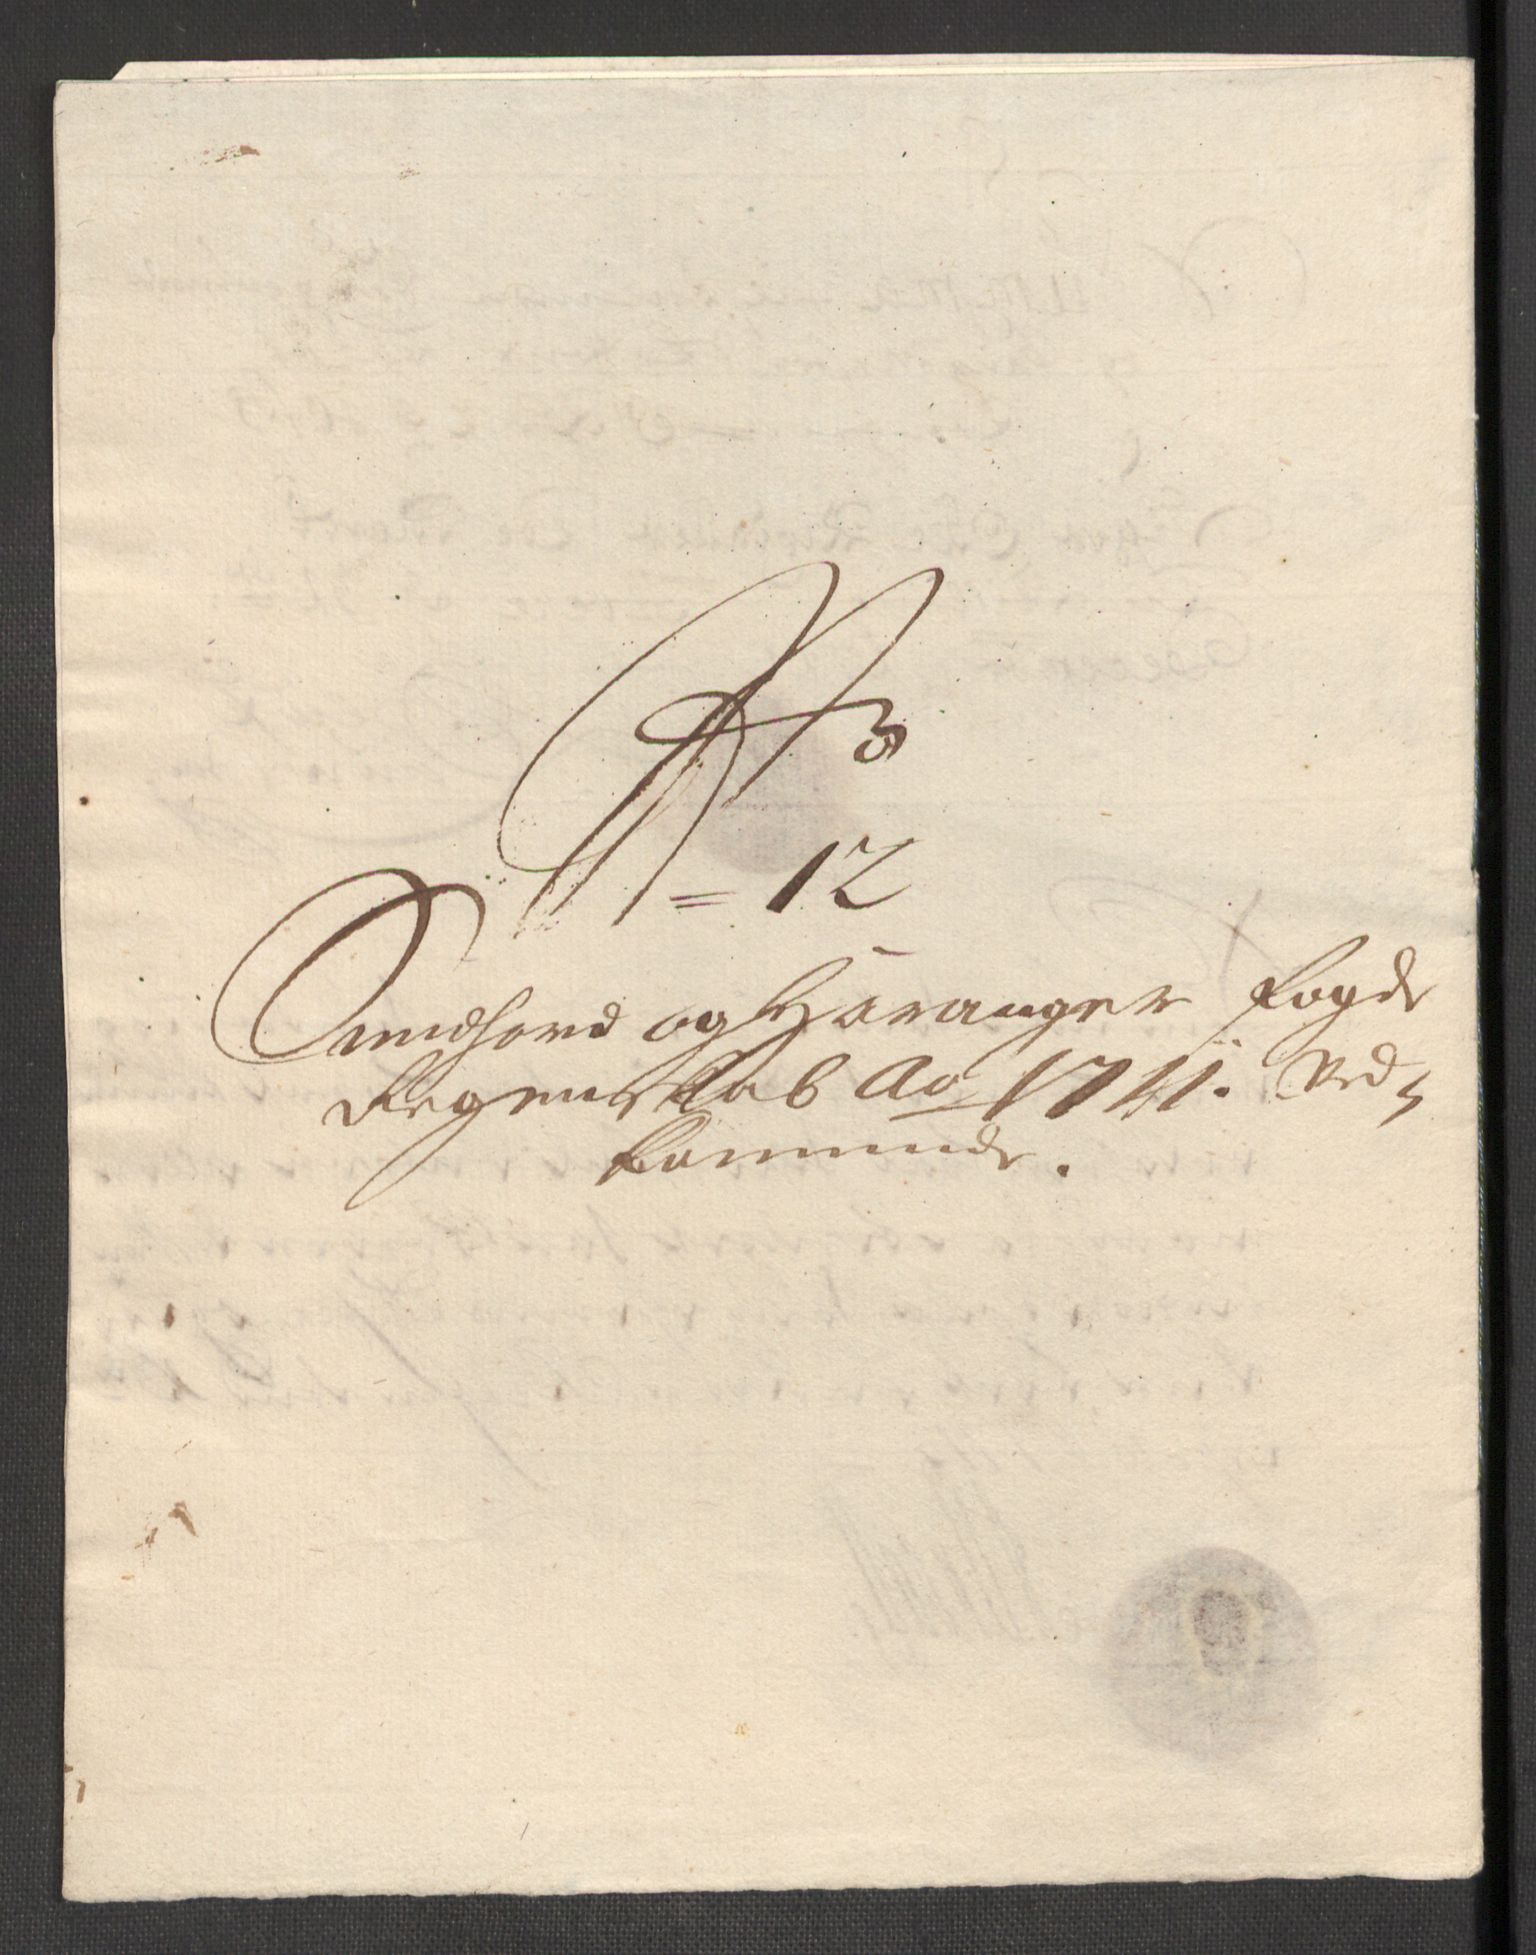 No
= 12
Sundhord og Haranger fogde
Regenskab Ao 1711. Ved,
kommende.